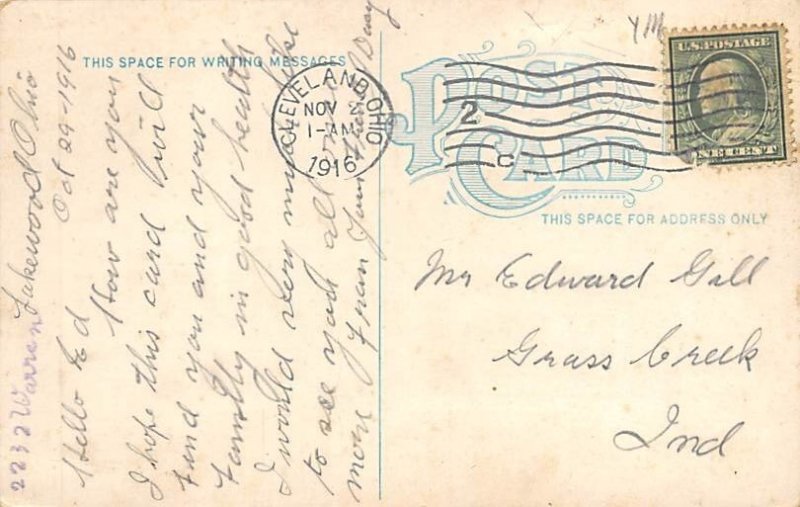 THIS SPACE FOR WRITING MESSAGES
2232 Warren
Lakewood Ohio
Oct 29-1916
Hello Ed
How are you
I hope this card will
find you and your
Family in good health
I would very much like
to see you all
more From Your Friend Daisy
CLEVELAND, OHIO
NOV 2
1-AM
1916
2
C
POST CARD
U.S. POSTAGE
ONE CENT
THIS SPACE FOR ADDRESS ONLY
Mr Edward Gall
Grass Creek
Ind